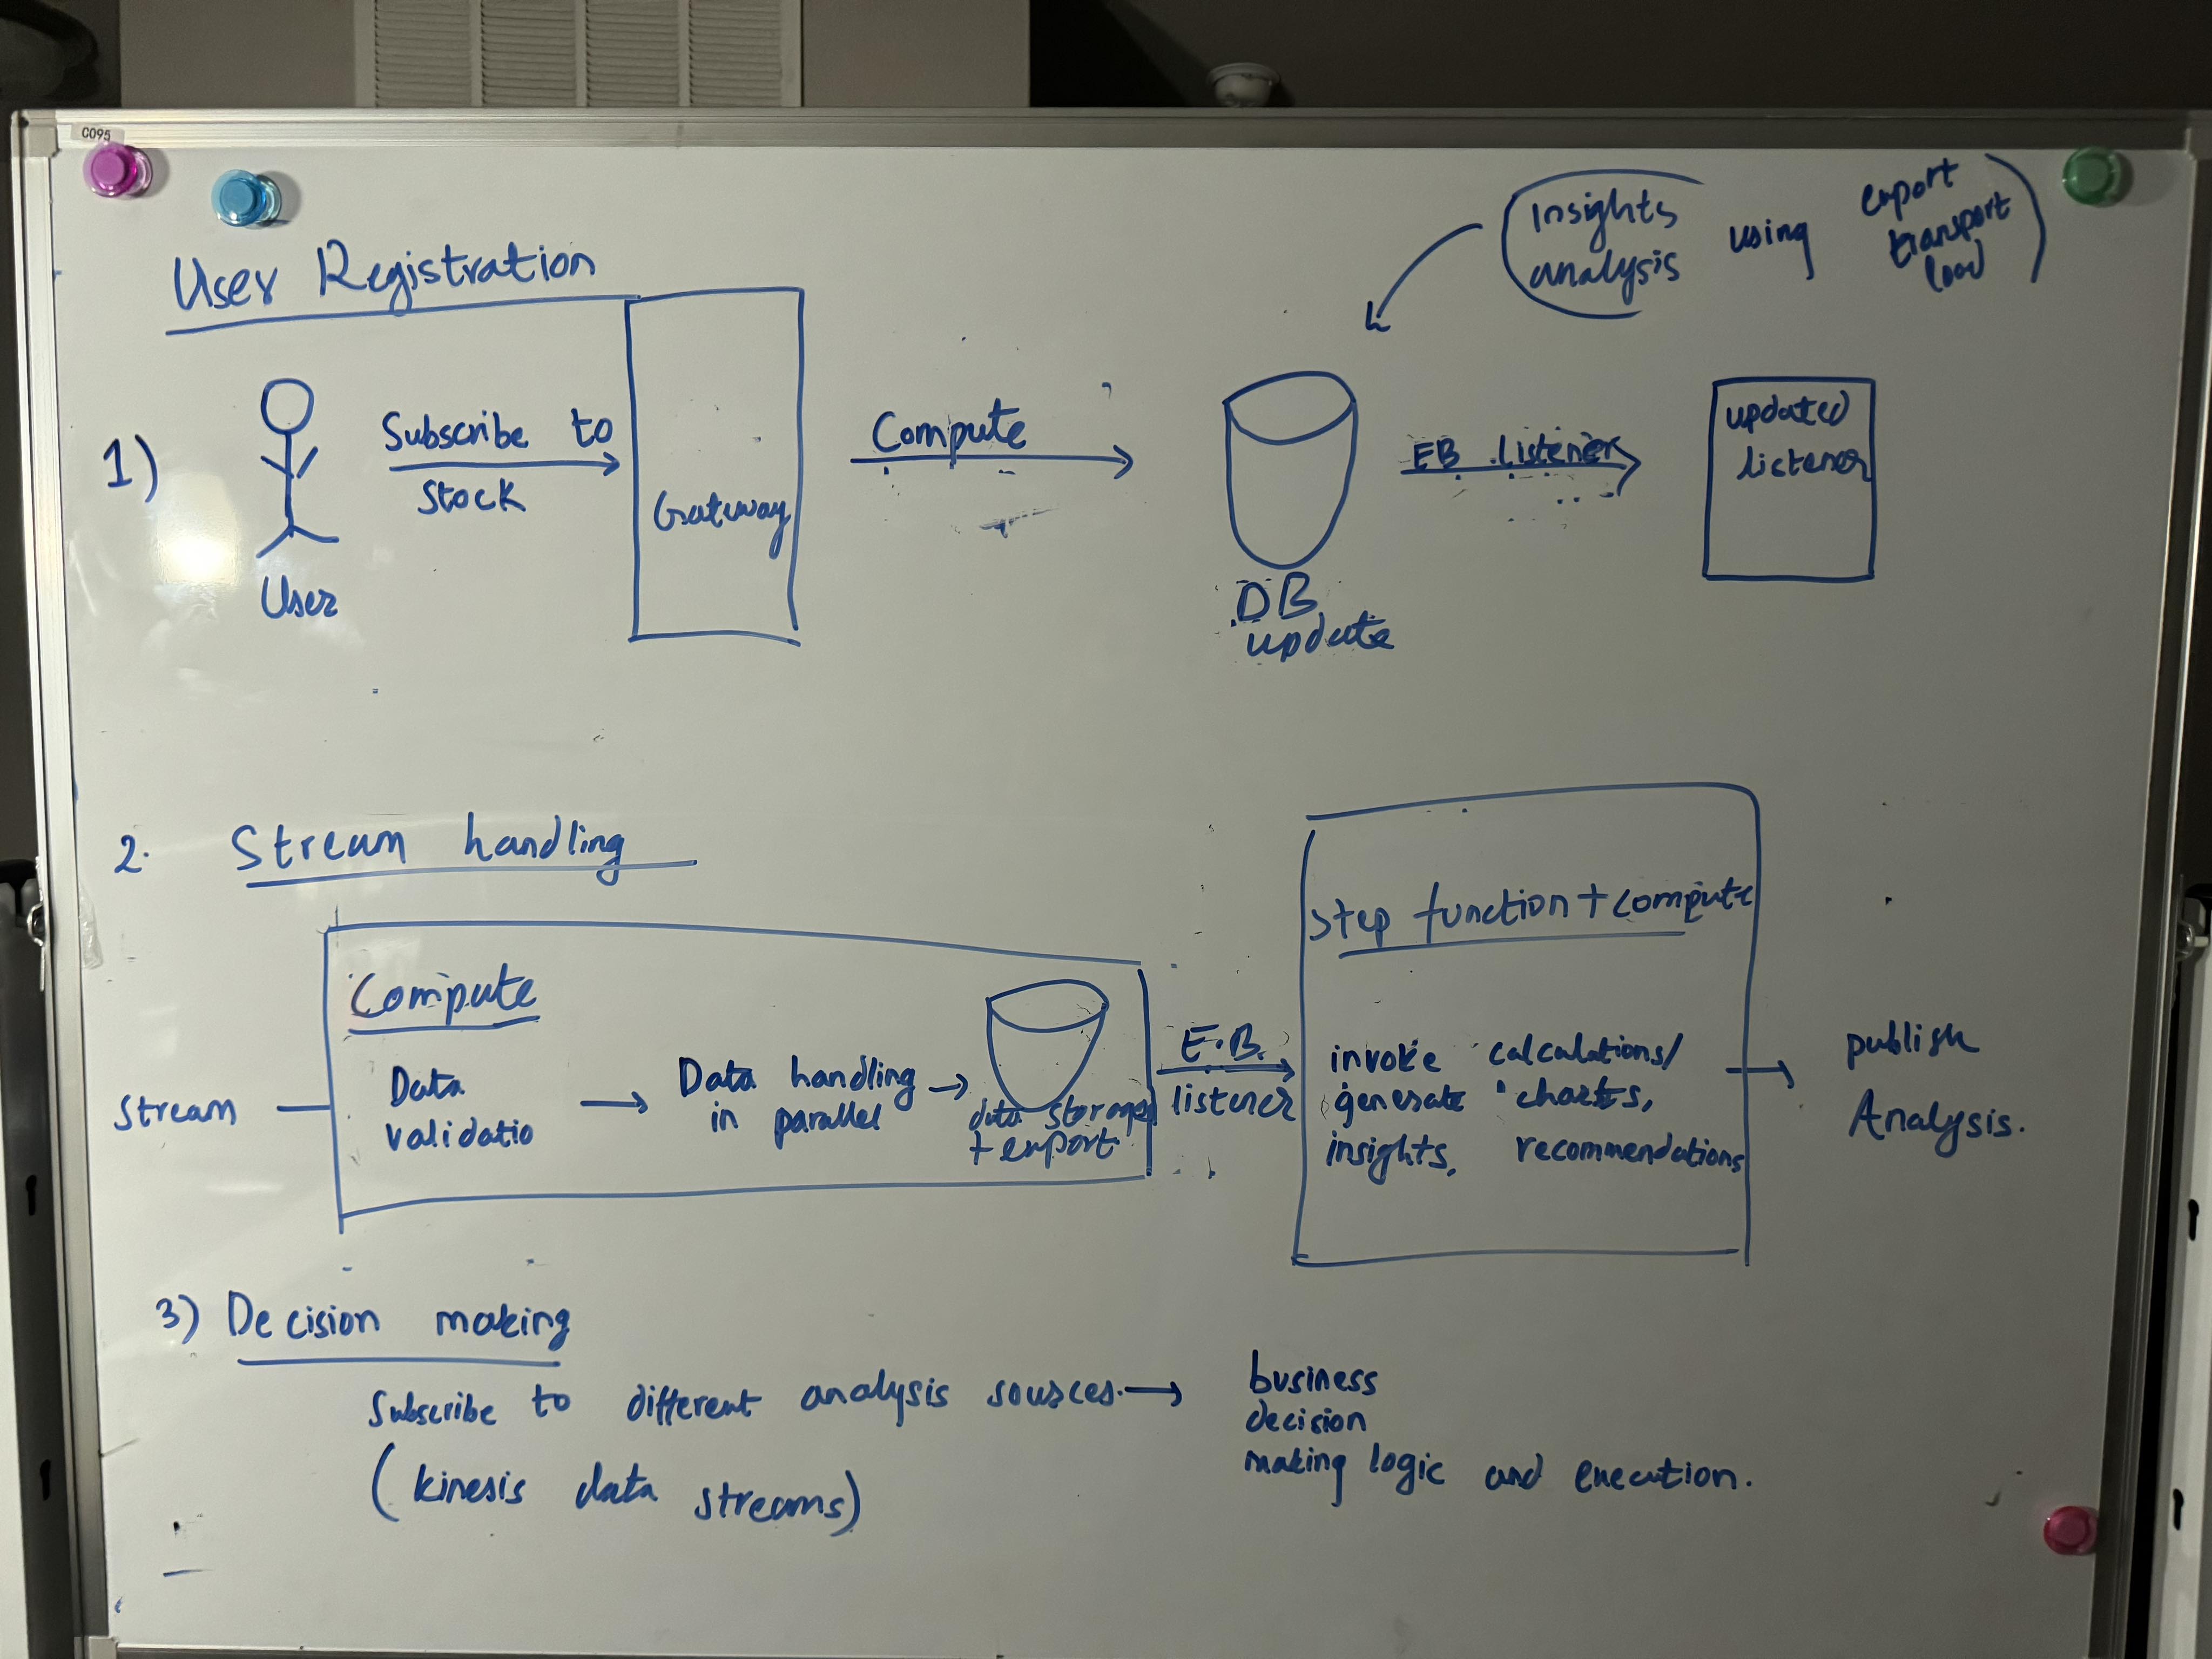 C095
User Registration
Insights
analysis
using
export
transport
load
1)
Subscribe to
Stock
User
Gateway
Compute
DB
update
EB Listener
updated
listener
2. Stream handling
Stream
Compute
Data
validatio
Data handling
in parallel
data storage
+ export
E.B.
listener
Step function + compute
invoke calculations/
generate charts,
insights, recommendations
publish
Analysis.
3) Decision making
Subscribe to different analysis sources.
(kinesis data streams)
business
decision
making logic and execution.